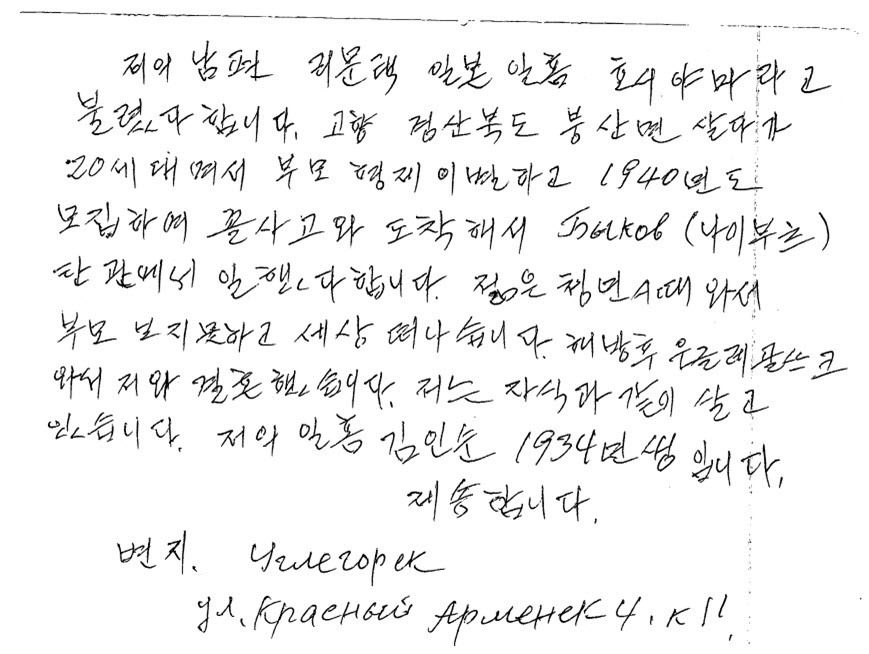 저의 남편 리문택 일본 일홈 호시야마라고
불렸다 합니다. 고향 경산북도 풍산면 살다가
20세 대며서 부모 형제 이별하고 1940년도
모집하여 꼴사고와 도착해서 Быков (나이부츠)
탄관에서 일했다 합니다. 젊은 청면시대 와서
부모 보지못하고 세상 떠나습니다. 해방후 우글레골쓰크
와서 저와 결혼했습니다. 저는 자식과 같이 살고
있습니다. 저의 일홈 김인순 1934면생 입니다.
재송합니다.
변지. Углегорек
ул. Красный Арменек 4. к 11.